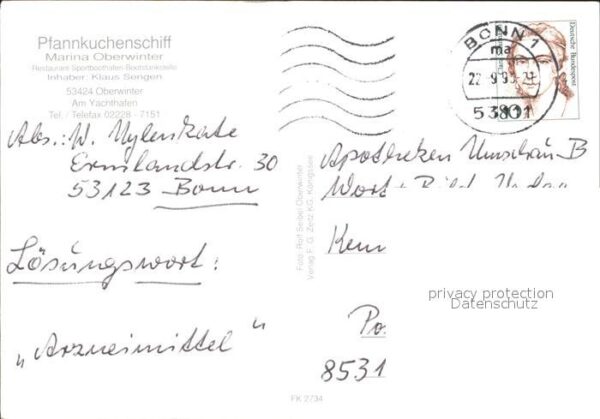 Pfannkuchenschiff
Marina Oberwinter
Restaurant Sportboothafen Bootstankstelle
Inhaber: Klaus Sengen
53424 Oberwinter
Am Yachthafen
Tel. / Telefax 02228 - 7151
Abs.: W. Uylenkate
Ermlandstr. 30
53123 Bonn
Lösungswort:
„Arzneimittel"
Foto: Rolf Seibel Oberwinter
Verlag F. G. Zeitz KG, Königssee
FK 2734
BONN 1
ma
5300 1
Deutsche Bundespost
Apotheken Umschau B
Wort + Bild
Kem
Po
8531
privacy protection
Datenschutz